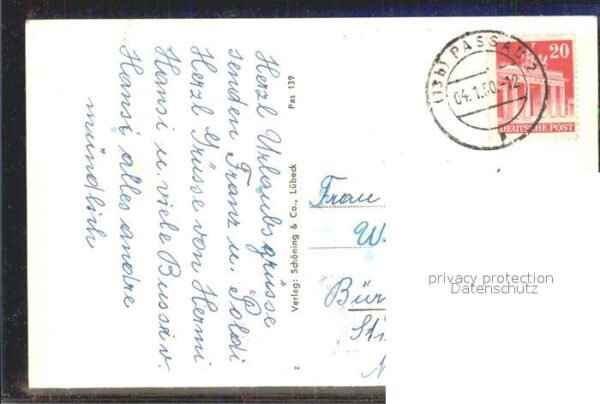 Herzl Urlaubsgrüsse
senden Franz u. Poldi
Herzl Grüsse von Hermi
Hansi u. viele Bussi v.
Hansi alles andre
mündlich
Pas 139
Verlag: Schöning & Co., Lübeck
z
(13b) PASSAU 2
04.1.50.-12
20
DEUTSCHE POST
Frau
W
Bür
St
privacy protection
Datenschutz